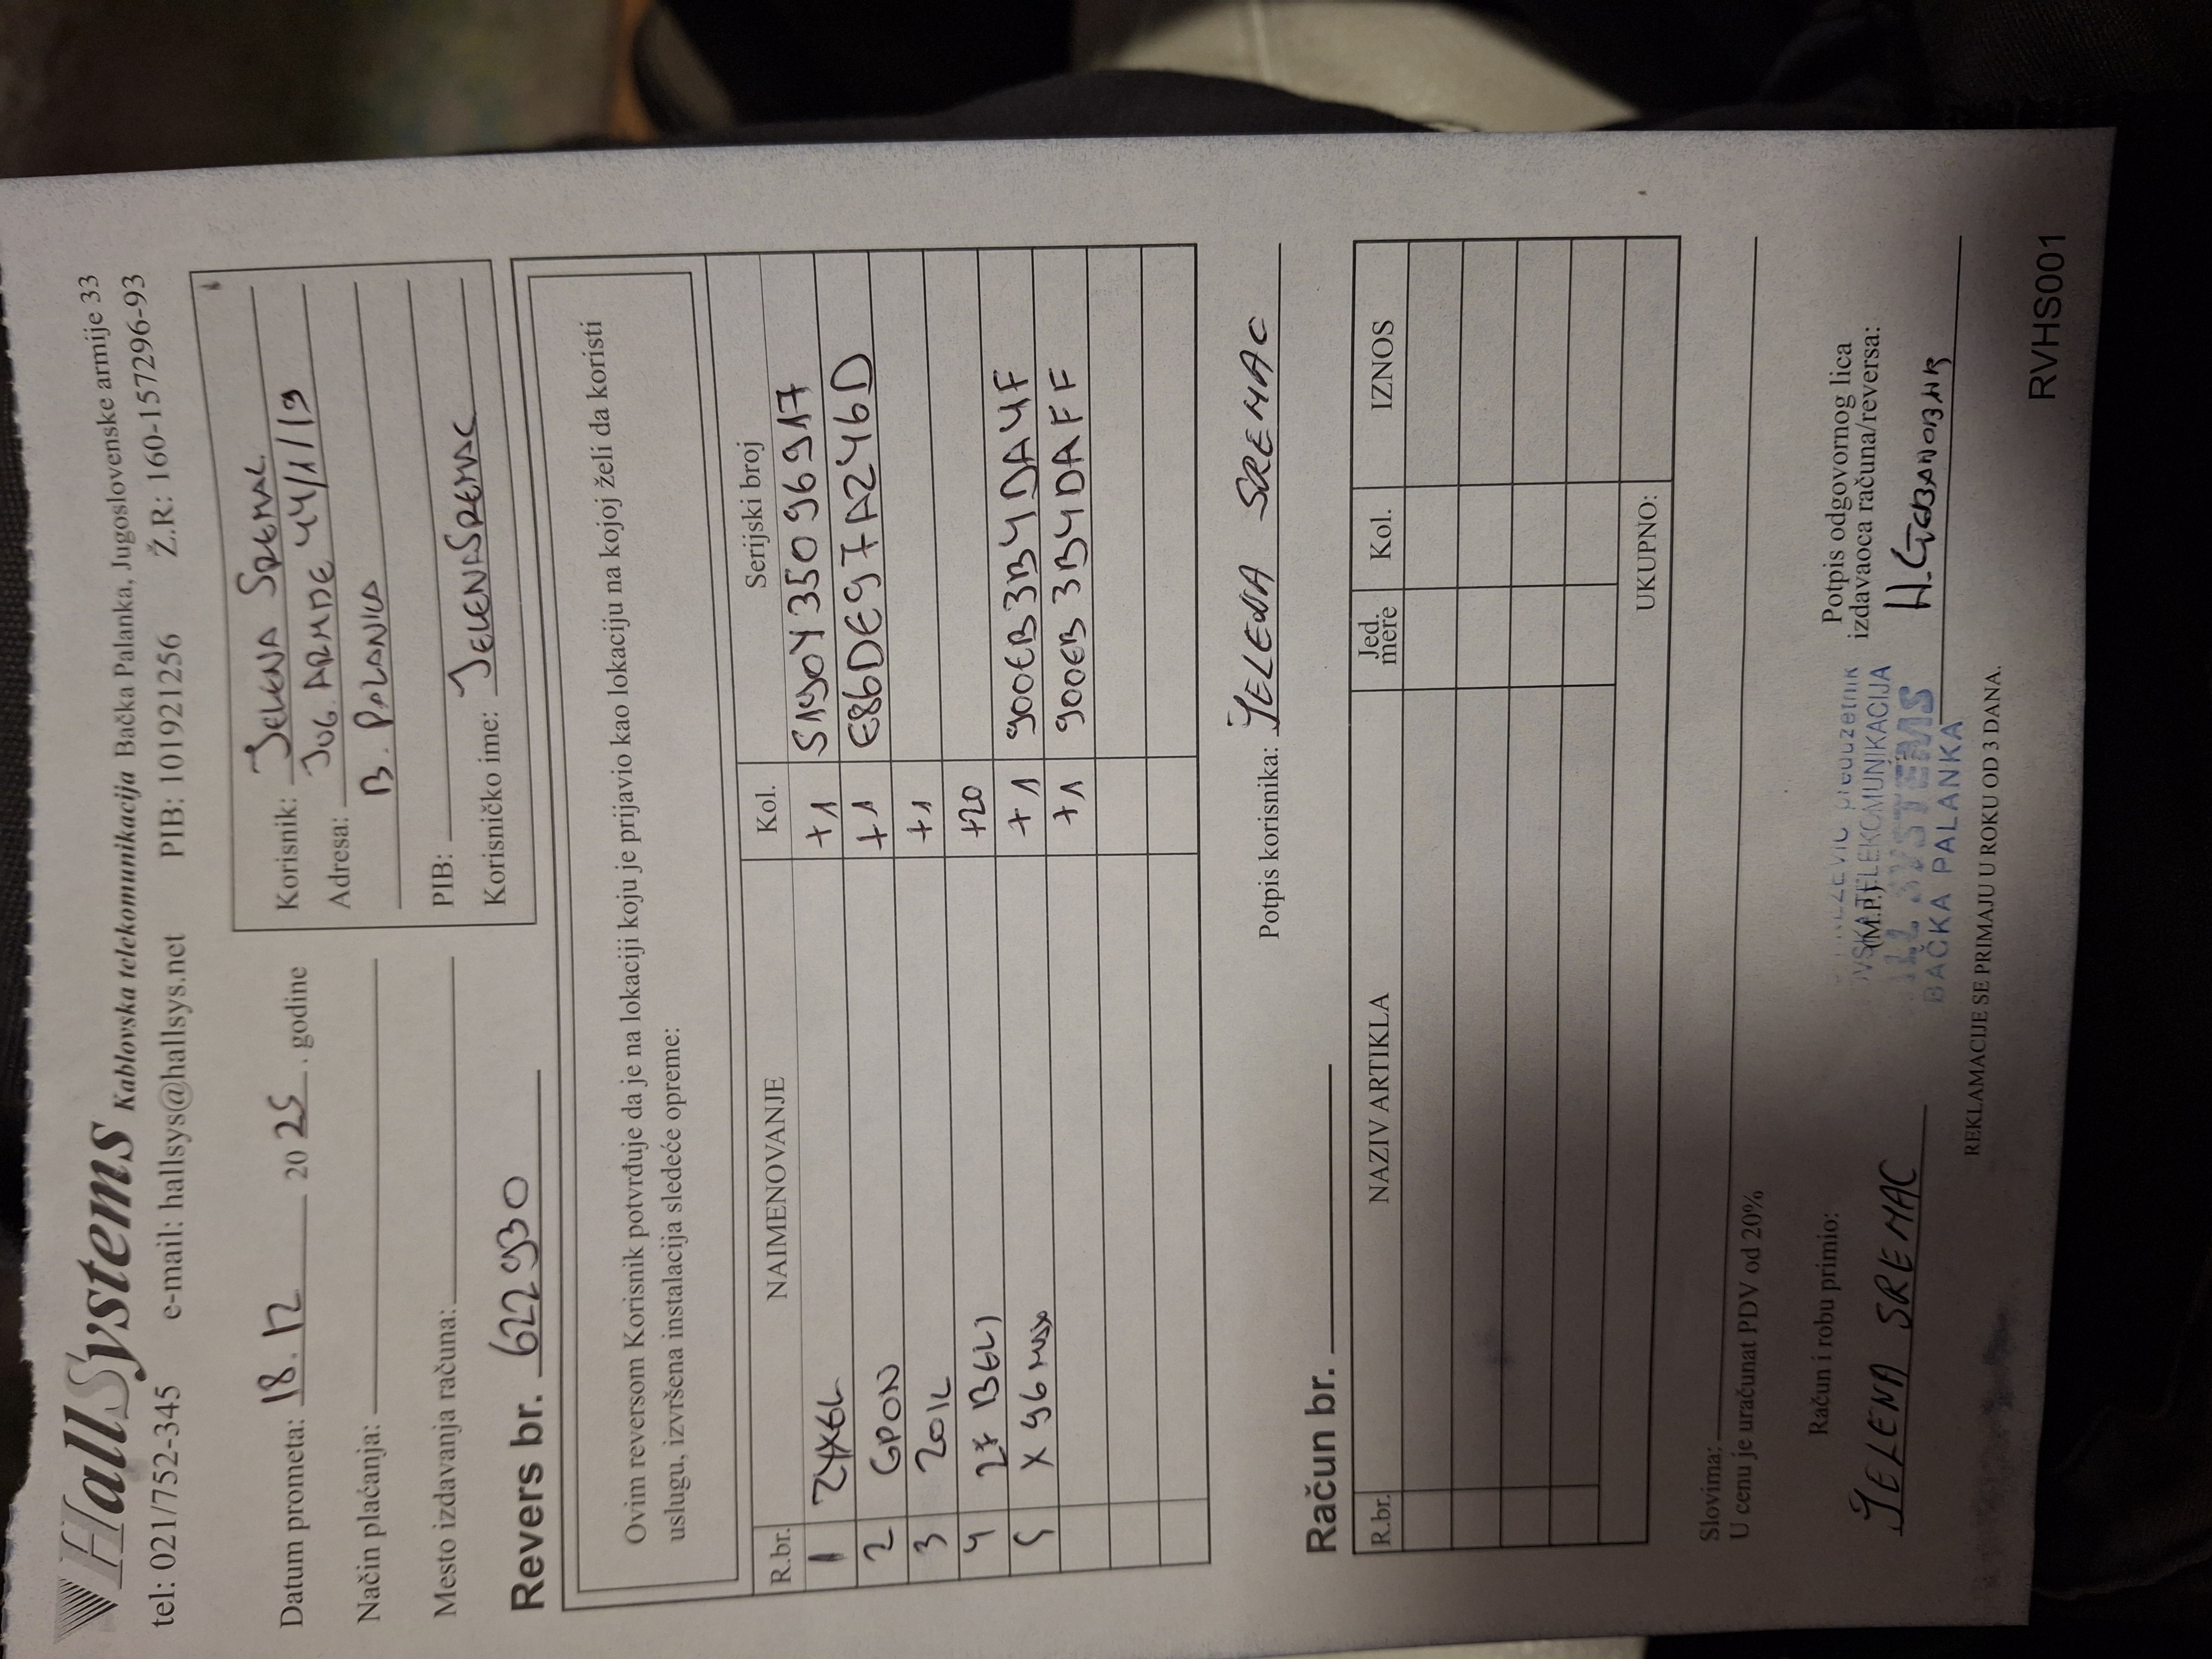 HallSystems Kablovska telekomunikacija Bačka Palanka, Jugoslovenske armije 33
tel: 021/752-345 e-mail: hallsys@hallsys.net PIB: 101921256 Ž.R.: 160-157296-93
Datum prometa: 18.12 2025. godine
Način plaćanja:
Mesto izdavanja računa:
Korisnik: JELENA SREMAC
Adresa: JUG. ARMIJE 44/1/19
B. PALANKA
PIB:
Korisničko ime: JELENASREMAC
Revers br. 622930
Ovim reversom Korisnik potvrđuje da je na lokaciji koju je prijavio kao lokaciju na kojoj želi da koristi
uslugu, izvršena instalacija sledeće opreme:
R.br. NAIMENOVANJE Kol. Serijski broj
1 ZYXEL +1 S190Y35096917
2 GPON +1 E86DE97A246D
3 201L +1
4 2* B6LI +20
5 X96 MAX +1 900EB3B4DA4F
+1 900EB3B4DAFF
Potpis korisnika: JELENA SREMAC
Račun br.
R.br. NAZIV ARTIKLA Jed. mere Kol. IZNOS
UKUPNO:
Slovima:
U cenu je uračunat PDV od 20%
Račun i robu primio:
JELENA SREMAC
(M.P.)
TELEKOMUNIKACIJA
BAČKA PALANKA
Potpis odgovornog lica
izdavaoca računa/reversa:
REKLAMACIJE SE PRIMAJU U ROKU OD 3 DANA.
RVHS001